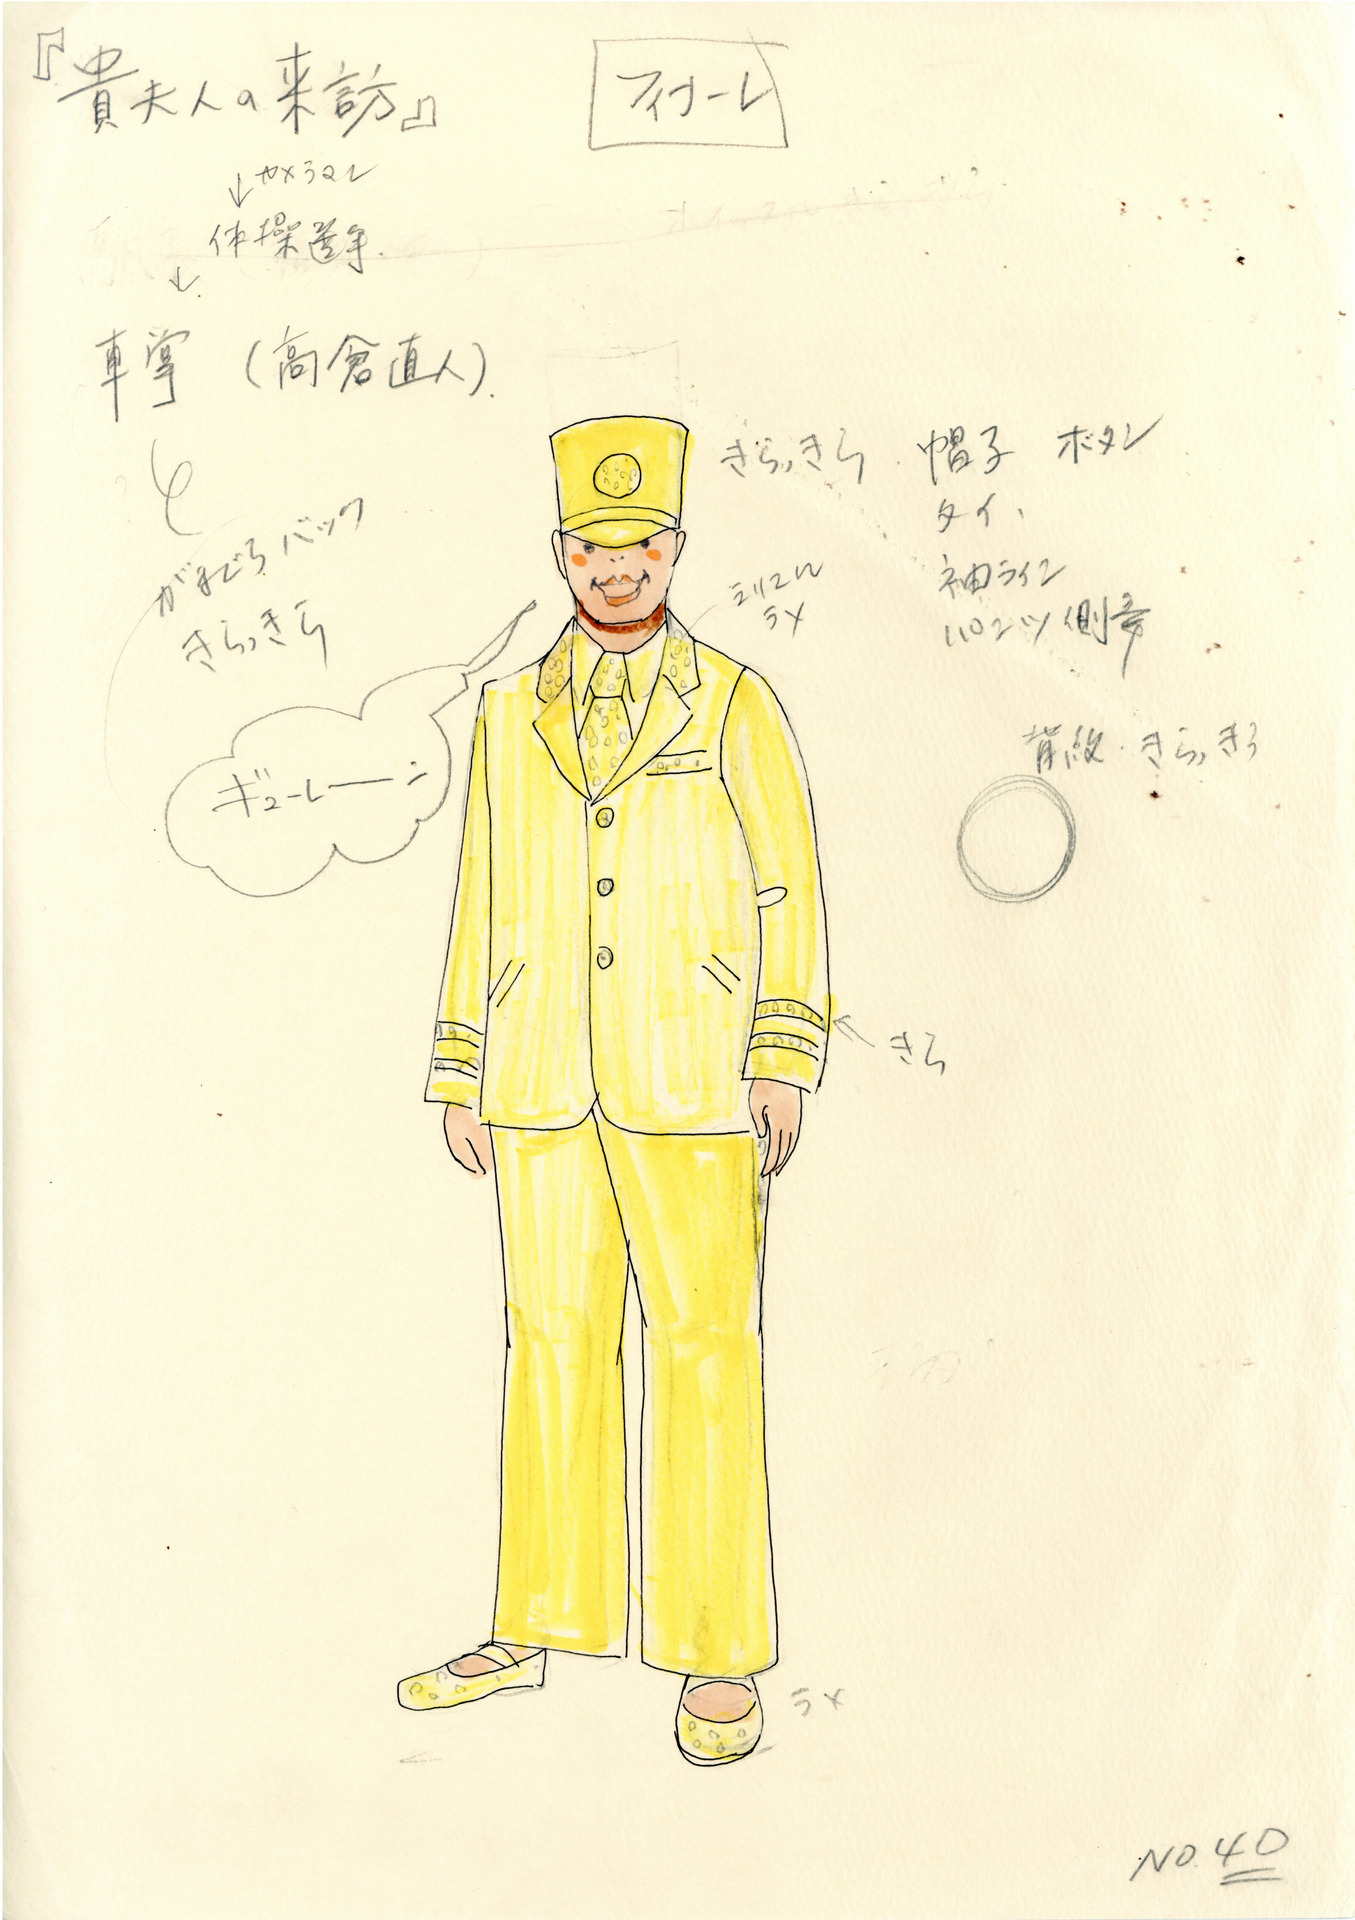 『貴夫人の来訪』
フィナーレ
体操選手
車掌 (高倉直人)
と
がまぐち バック
きらっきら
ギューレーン
きらっきら 帽子 ボタン
タイ
袖ライン
パンツ側章
ラメ
背紋 きらっきら
きら
ラメ
NO.40